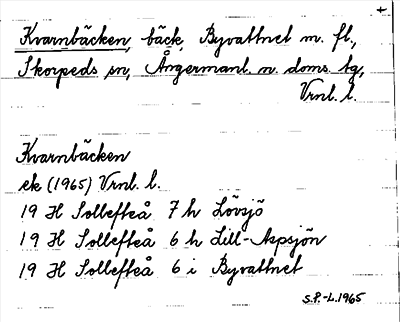 +
Kvarnbäcken, bäck, Byvattnet m. fl.,
Skorpeds sn, Ångermanl. n. doms. tg,
Vrnl. l.
Kvarnbäcken
ek (1965) Vrnl. l.
19 H Sollefteå 7 h Lövsjö
19 H Sollefteå 6 h Lill-Aspsjön
19 H Sollefteå 6 i Byvattnet
S.P.-L. 1965